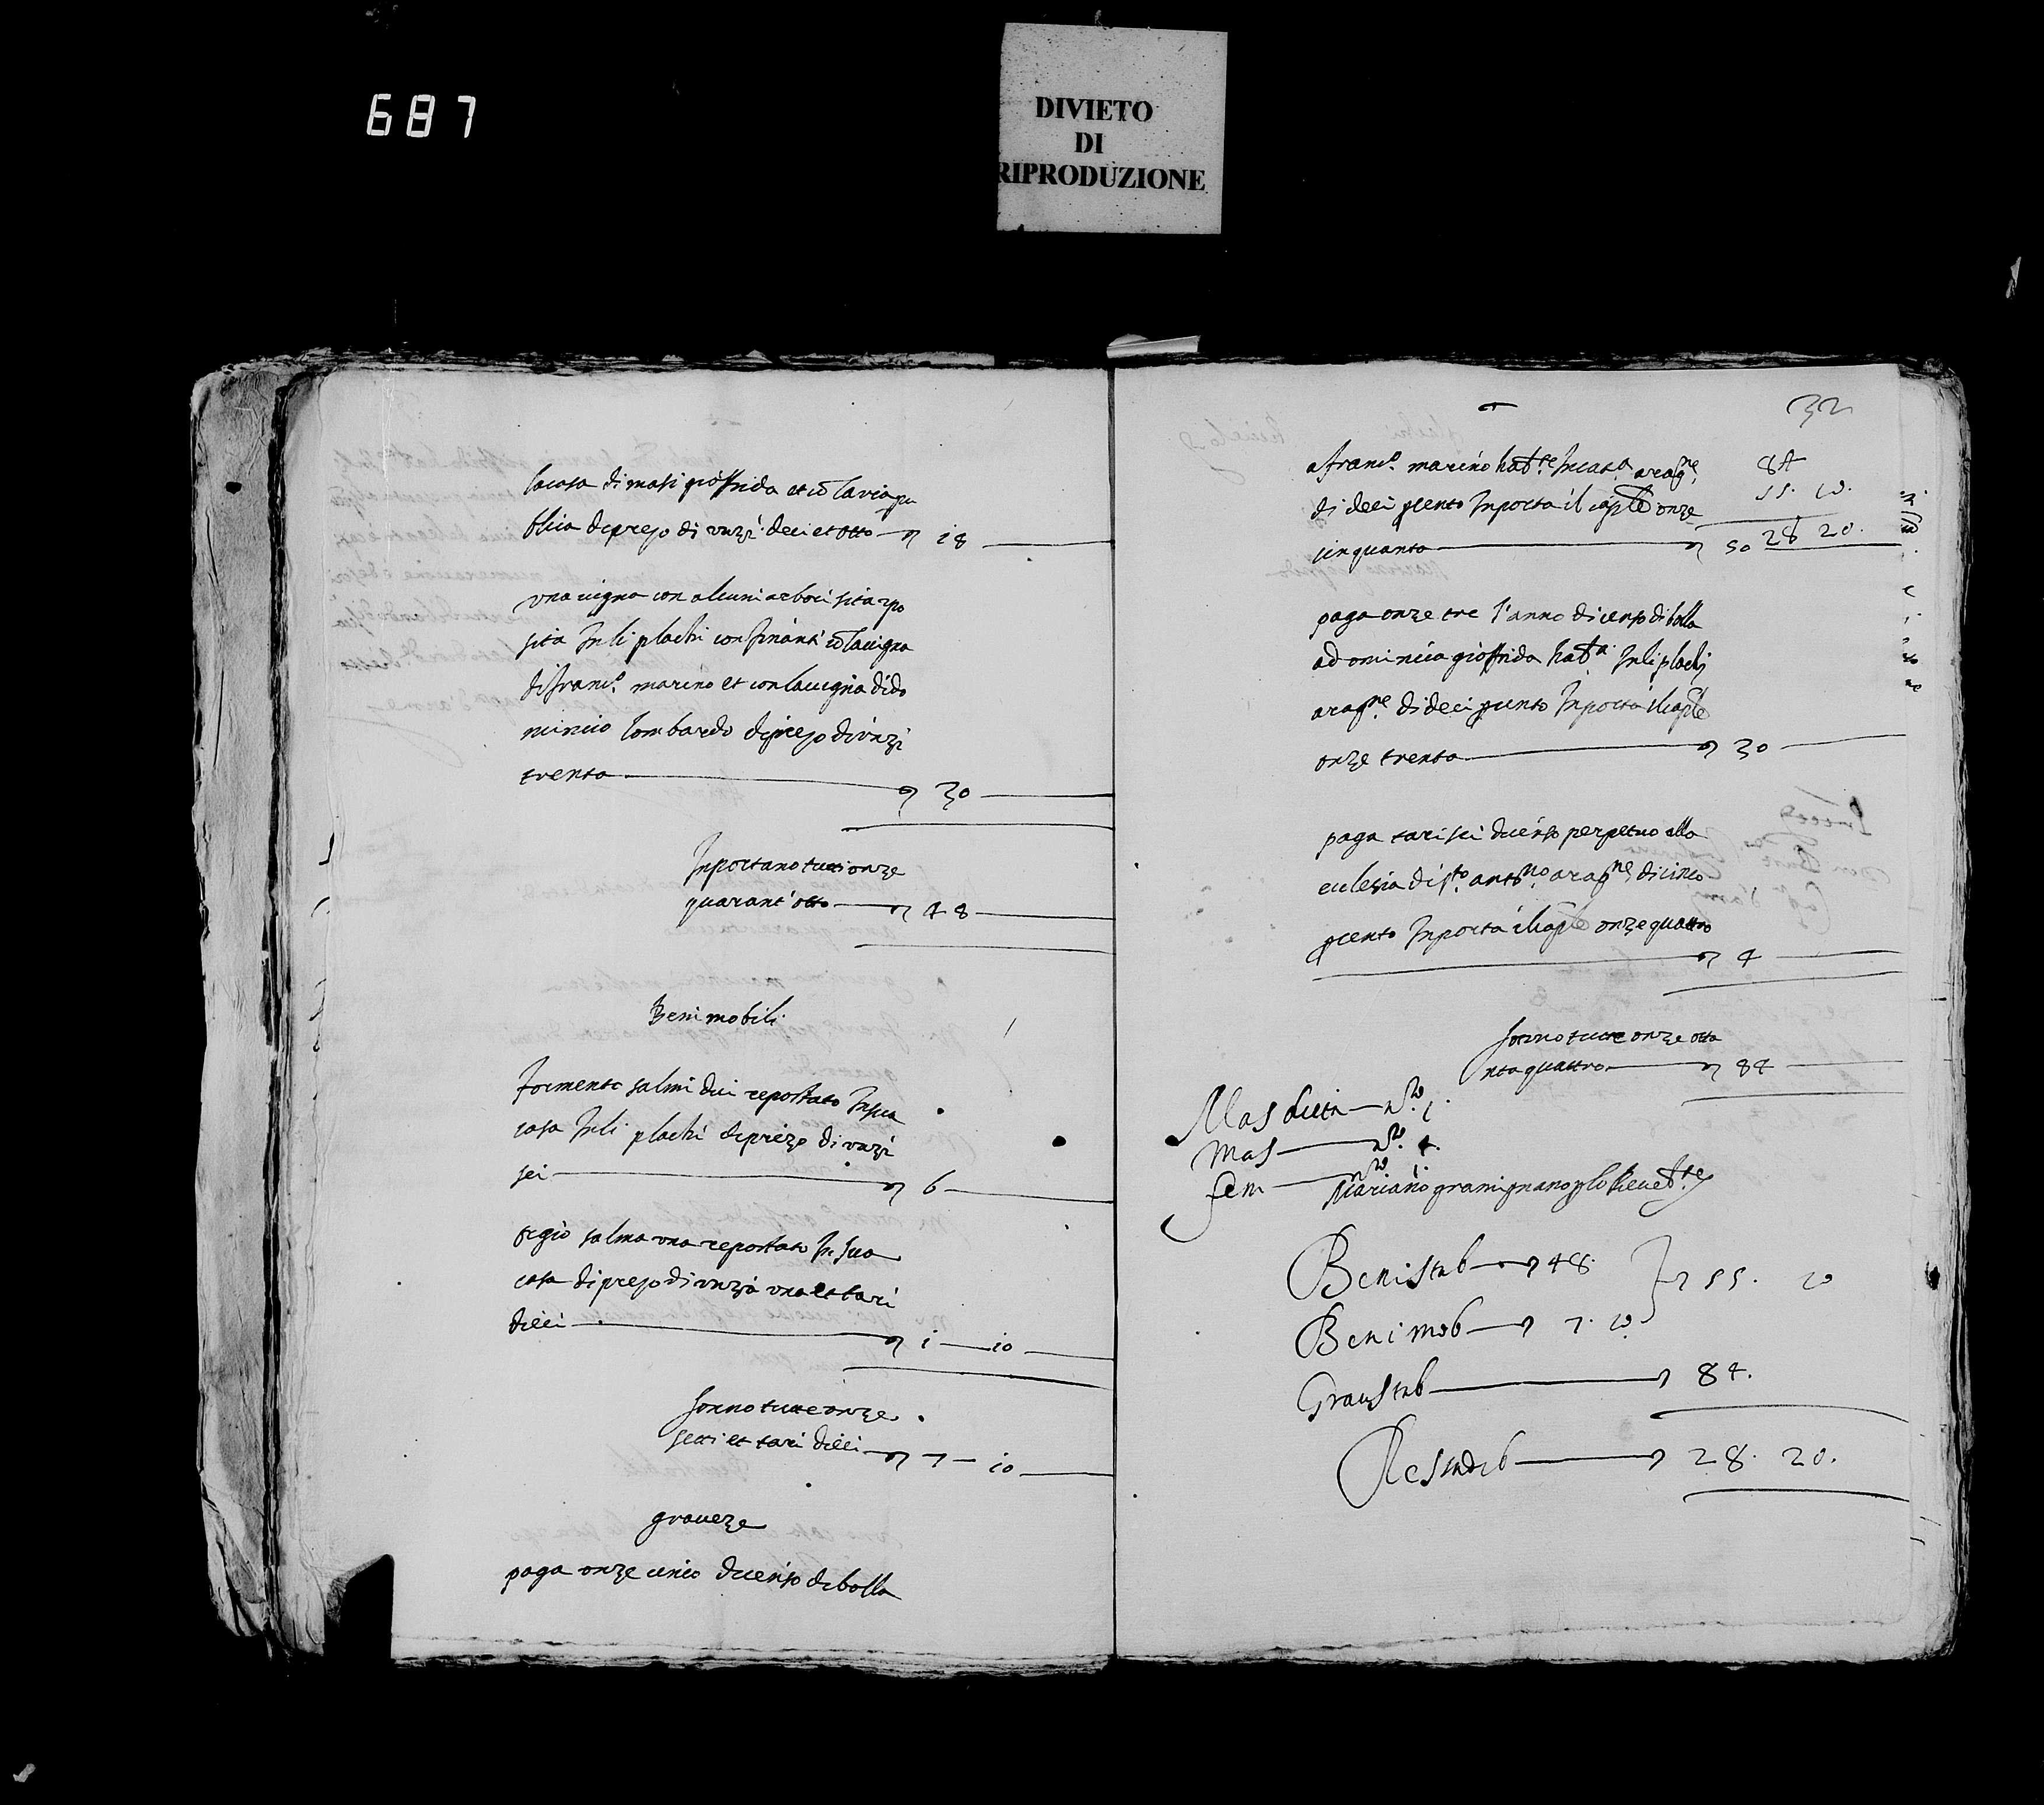 687
DIVIETO
DI
RIPRODUZIONE
la casa di masi gioffrida et cō la via pu
blica de prezo di unzi deci et otto — 18
una vigna con alcuni arbori sita et po
sita In li plachi confinanti cō la vigna
di franco. marino et con la vigna di do
minico lombardo de prezo di unzi
trenta — 30
Inportano tutti onze
quarant'otto — 48
Beni mobili
formento salmi dui repostato In sua
casa In li plachi de prezo di unzi
sei — 6
orgio salma una repostato In sua
casa di prezo di unza una et tari
dieci — 1 — 10
sonno tutte onze
setti et tari dieci — 7 — 10
graveze
paga onze cinco di censo de bolla
32
a franco. marino habte. In cata. a ragne.
di deci per cento Inporta il caple onze
cinquanta — 50
84
55. 10.
28 20.
paga onze tre l'anno di censo di bolla
a dominica gioffrida habta. In li plachi
a ragne. di deci per cento Inporta il caple
onze trenta — 30
paga tari sei di censo perpetuo alla
ecclesia di sto. antno. a ragne. di cinco
per cento Inporta il caple onze quattro
— 4
sonno tutte onze otta
nta quattro — 84
Mas dicta — no. 1.
Mas — no. 4.
fem — no.
Mariano gramignano
Beni stab — 48.
55. 10
Beni mob — 7. 10.
Grav stab — 84.
Resta deb — 28. 20.